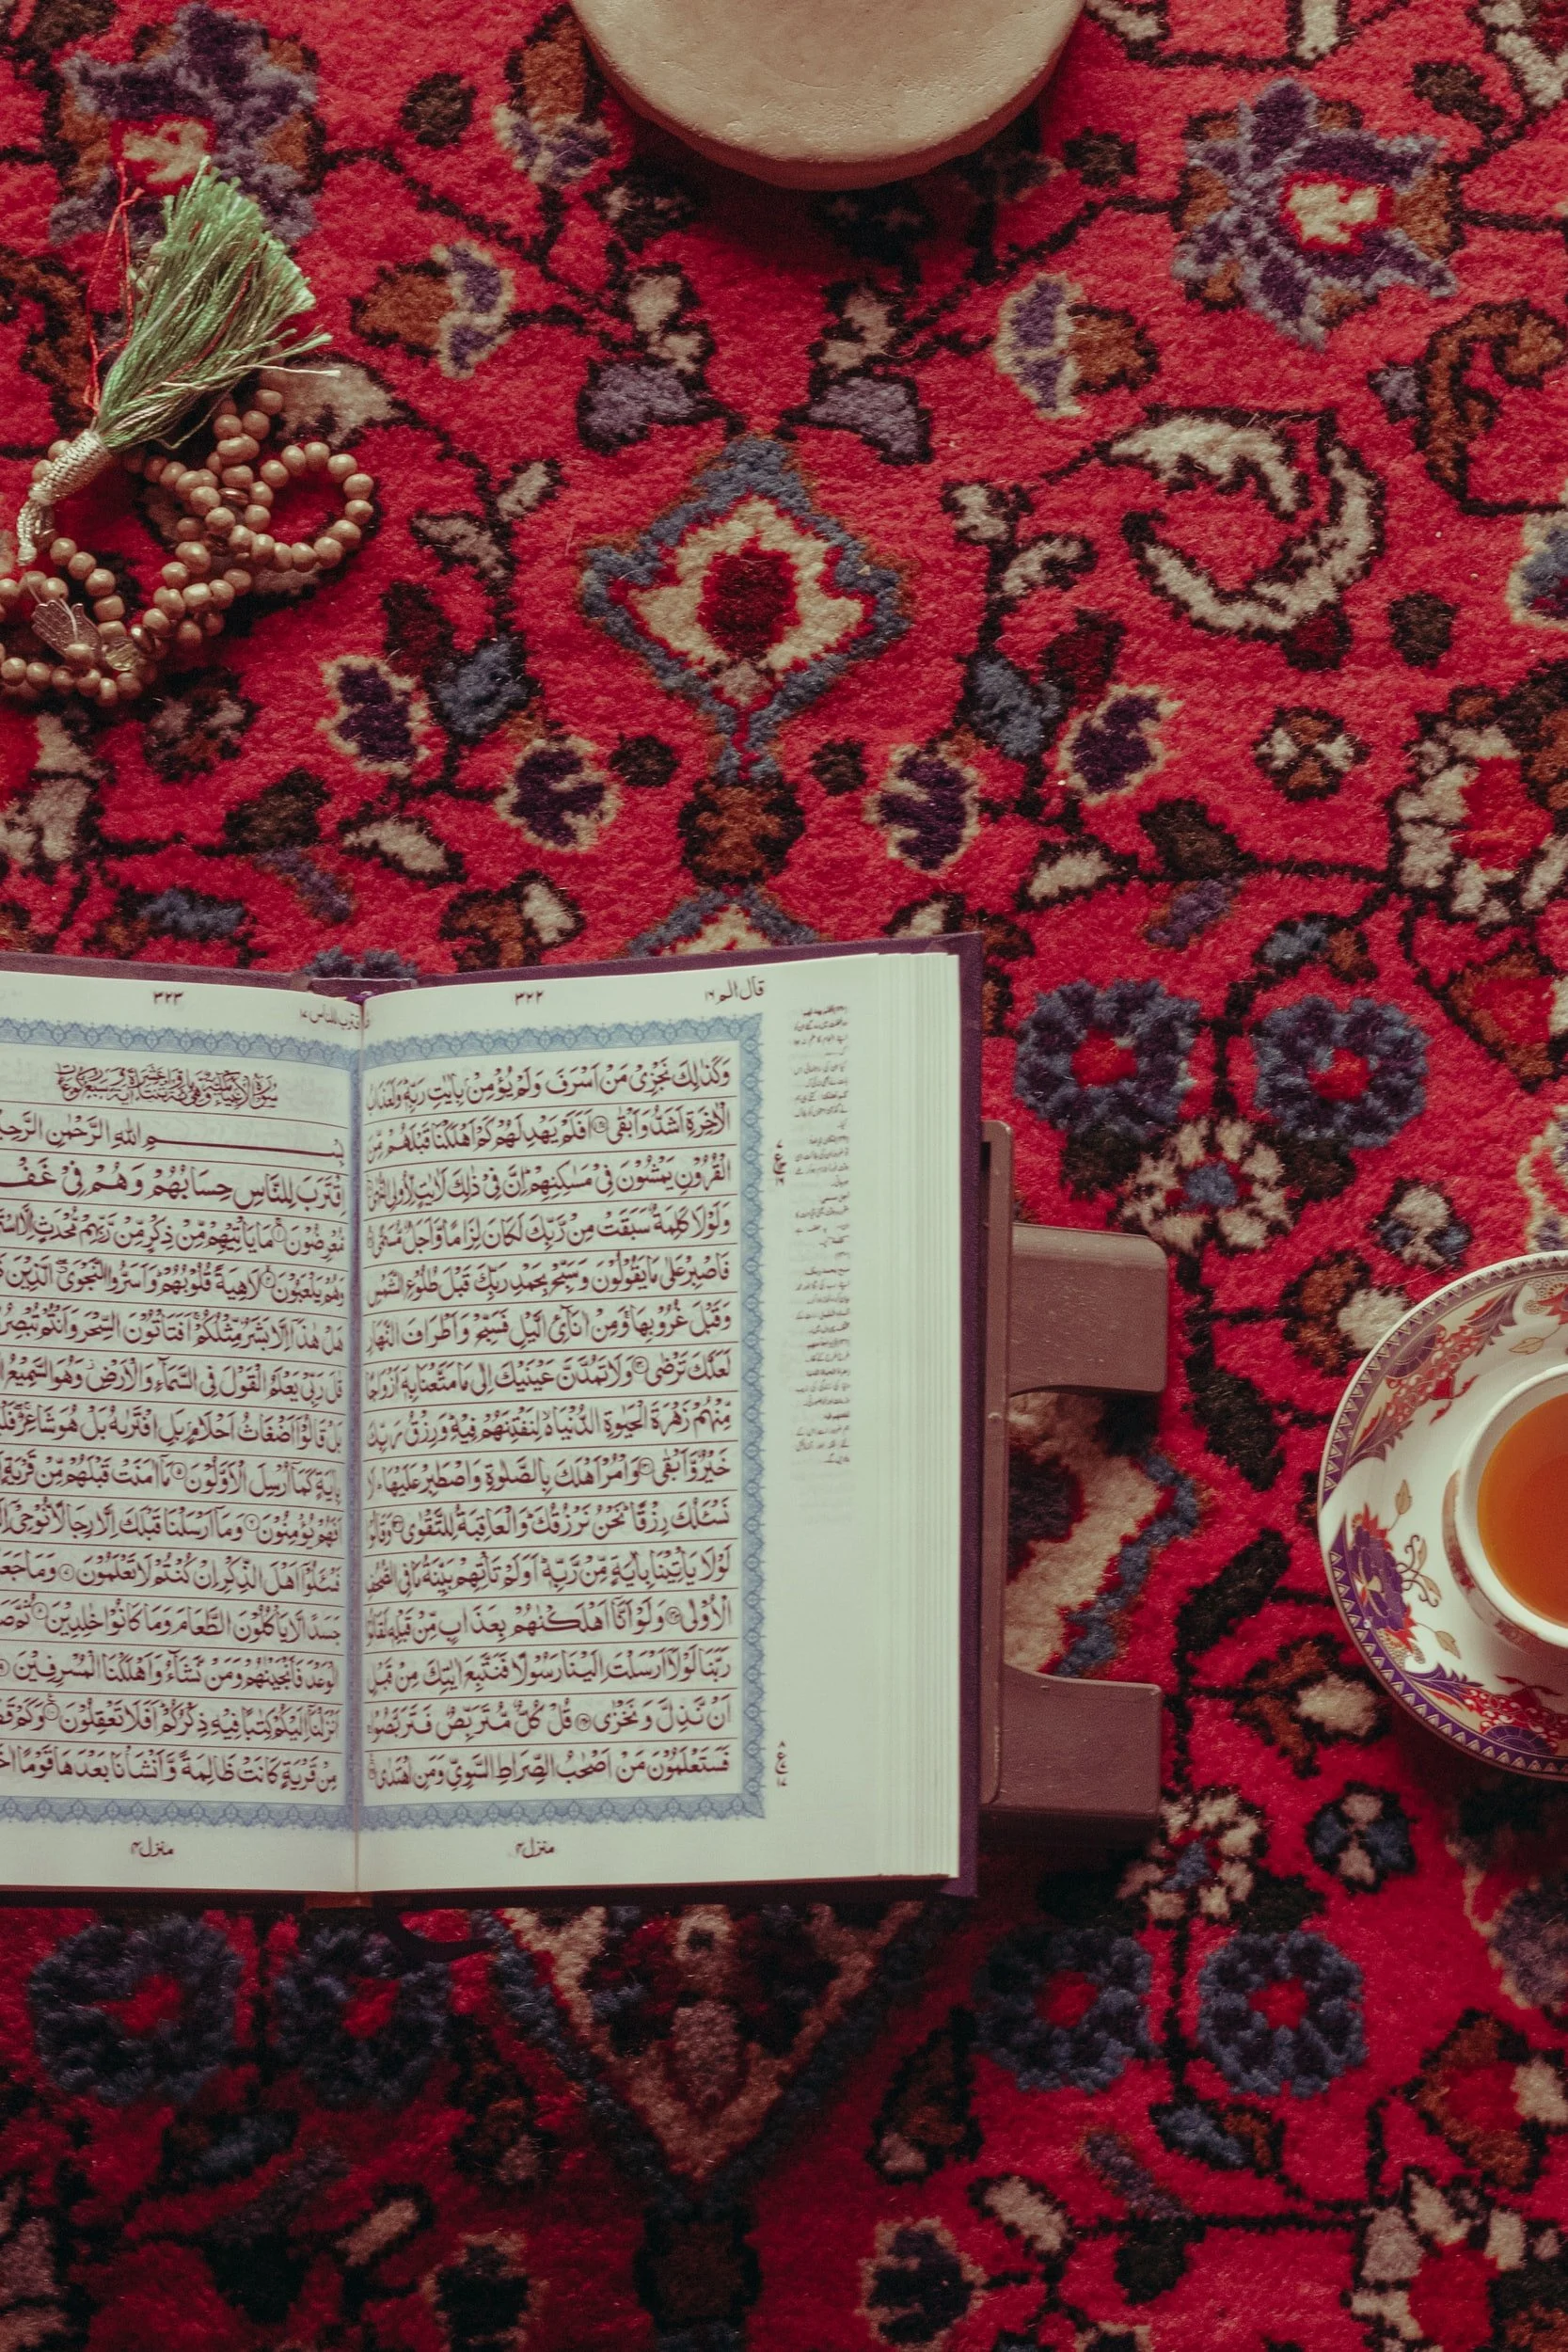 قال الم ١٦
٣٢٢
وَكَذٰلِكَ نَجْزِیْ مَنْ اَسْرَفَ وَلَمْ یُؤْمِنْۢ بِاٰیٰتِ رَبِّهٖ ؕ وَلَعَذَابُ
الْاٰخِرَةِ اَشَدُّ وَاَبْقٰی ۝ اَفَلَمْ یَهْدِ لَهُمْ كَمْ اَهْلَكْنَا قَبْلَهُمْ مِّنَ
الْقُرُوْنِ یَمْشُوْنَ فِیْ مَسٰكِنِهِمْ ؕ اِنَّ فِیْ ذٰلِكَ لَاٰیٰتٍ لِّاُولِی النُّهٰی
وَلَوْلَا كَلِمَةٌ سَبَقَتْ مِنْ رَّبِّكَ لَكَانَ لِزَامًا وَّاَجَلٌ مُّسَمًّی
فَاصْبِرْ عَلٰی مَا یَقُوْلُوْنَ وَسَبِّحْ بِحَمْدِ رَبِّكَ قَبْلَ طُلُوْعِ الشَّمْسِ
وَقَبْلَ غُرُوْبِهَا ۚ وَمِنْ اٰنَآئِ الَّیْلِ فَسَبِّحْ وَاَطْرَافَ النَّهَارِ
لَعَلَّكَ تَرْضٰی ۝ وَلَا تَمُدَّنَّ عَیْنَیْكَ اِلٰی مَا مَتَّعْنَا بِهٖۤ اَزْوَاجًا
مِّنْهُمْ زَهْرَةَ الْحَیٰوةِ الدُّنْیَا ۙ۬ لِنَفْتِنَهُمْ فِیْهِ ؕ وَرِزْقُ رَبِّكَ
خَیْرٌ وَّاَبْقٰی ۝ وَاْمُرْ اَهْلَكَ بِالصَّلٰوةِ وَاصْطَبِرْ عَلَیْهَا ؕ لَا
نَسْـَٔلُكَ رِزْقًا ؕ نَحْنُ نَرْزُقُكَ ؕ وَالْعَاقِبَةُ لِلتَّقْوٰی ۝ وَقَالُوْا
لَوْلَا یَاْتِیْنَا بِاٰیَةٍ مِّنْ رَّبِّهٖ ؕ اَوَلَمْ تَاْتِهِمْ بَیِّنَةُ مَا فِی الصُّحُفِ
الْاُوْلٰی ۝ وَلَوْ اَنَّاۤ اَهْلَكْنٰهُمْ بِعَذَابٍ مِّنْ قَبْلِهٖ لَقَالُوْا
رَبَّنَا لَوْلَاۤ اَرْسَلْتَ اِلَیْنَا رَسُوْلًا فَنَتَّبِعَ اٰیٰتِكَ مِنْ قَبْلِ
اَنْ نَّذِلَّ وَنَخْزٰی ۝ قُلْ كُلٌّ مُّتَرَبِّصٌ فَتَرَبَّصُوْا ۚ
فَسَتَعْلَمُوْنَ مَنْ اَصْحٰبُ الصِّرَاطِ السَّوِیِّ وَمَنِ اهْتَدٰی
منزل ٤
اقترب للناس ١٧
٣٢٣
بِسْمِ اللّٰهِ الرَّحْمٰنِ
اِقْتَرَبَ لِلنَّاسِ حِسَابُهُمْ وَهُمْ فِیْ
مُّعْرِضُوْنَ ۝ مَا یَاْتِیْهِمْ مِّنْ ذِكْرٍ مِّنْ رَّبِّهِمْ مُّحْدَثٍ اِلَّا
وَهُمْ یَلْعَبُوْنَ ۝ لَاهِیَةً قُلُوْبُهُمْ ؕ وَاَسَرُّوا النَّجْوَی ۖۗ الَّذِیْنَ
هَلْ هٰذَاۤ اِلَّا بَشَرٌ مِّثْلُكُمْ ۚ اَفَتَاْتُوْنَ السِّحْرَ وَاَنْتُمْ
قٰلَ رَبِّیْ یَعْلَمُ الْقَوْلَ فِی السَّمَآءِ وَالْاَرْضِ ؗ وَهُوَ السَّمِیْعُ
بَلْ قَالُوْۤا اَضْغَاثُ اَحْلَامٍۭ بَلِ افْتَرٰىهُ بَلْ هُوَ شَاعِرٌ ۖۚ
بِاٰیَةٍ كَمَاۤ اُرْسِلَ الْاَوَّلُوْنَ ۝ مَاۤ اٰمَنَتْ قَبْلَهُمْ مِّنْ قَرْیَةٍ
اَفَهُمْ یُؤْمِنُوْنَ ۝ وَمَاۤ اَرْسَلْنَا قَبْلَكَ اِلَّا رِجَالًا نُّوْحِیْۤ
فَسْـَٔلُوْۤا اَهْلَ الذِّكْرِ اِنْ كُنْتُمْ لَا تَعْلَمُوْنَ ۝ وَمَا
جَسَدًا لَّا یَاْكُلُوْنَ الطَّعَامَ وَمَا كَانُوْا خٰلِدِیْنَ ۝ ثُمَّ
الْوَعْدَ فَاَنْجَیْنٰهُمْ وَمَنْ نَّشَآءُ وَاَهْلَكْنَا الْمُسْرِفِیْنَ
اَنْزَلْنَاۤ اِلَیْكُمْ كِتٰبًا فِیْهِ ذِكْرُكُمْ ؕ اَفَلَا تَعْقِلُوْنَ ۝ وَكَمْ
مِنْ قَرْیَةٍ كَانَتْ ظَالِمَةً وَّاَنْشَاْنَا بَعْدَهَا قَوْمًا
منزل ٤